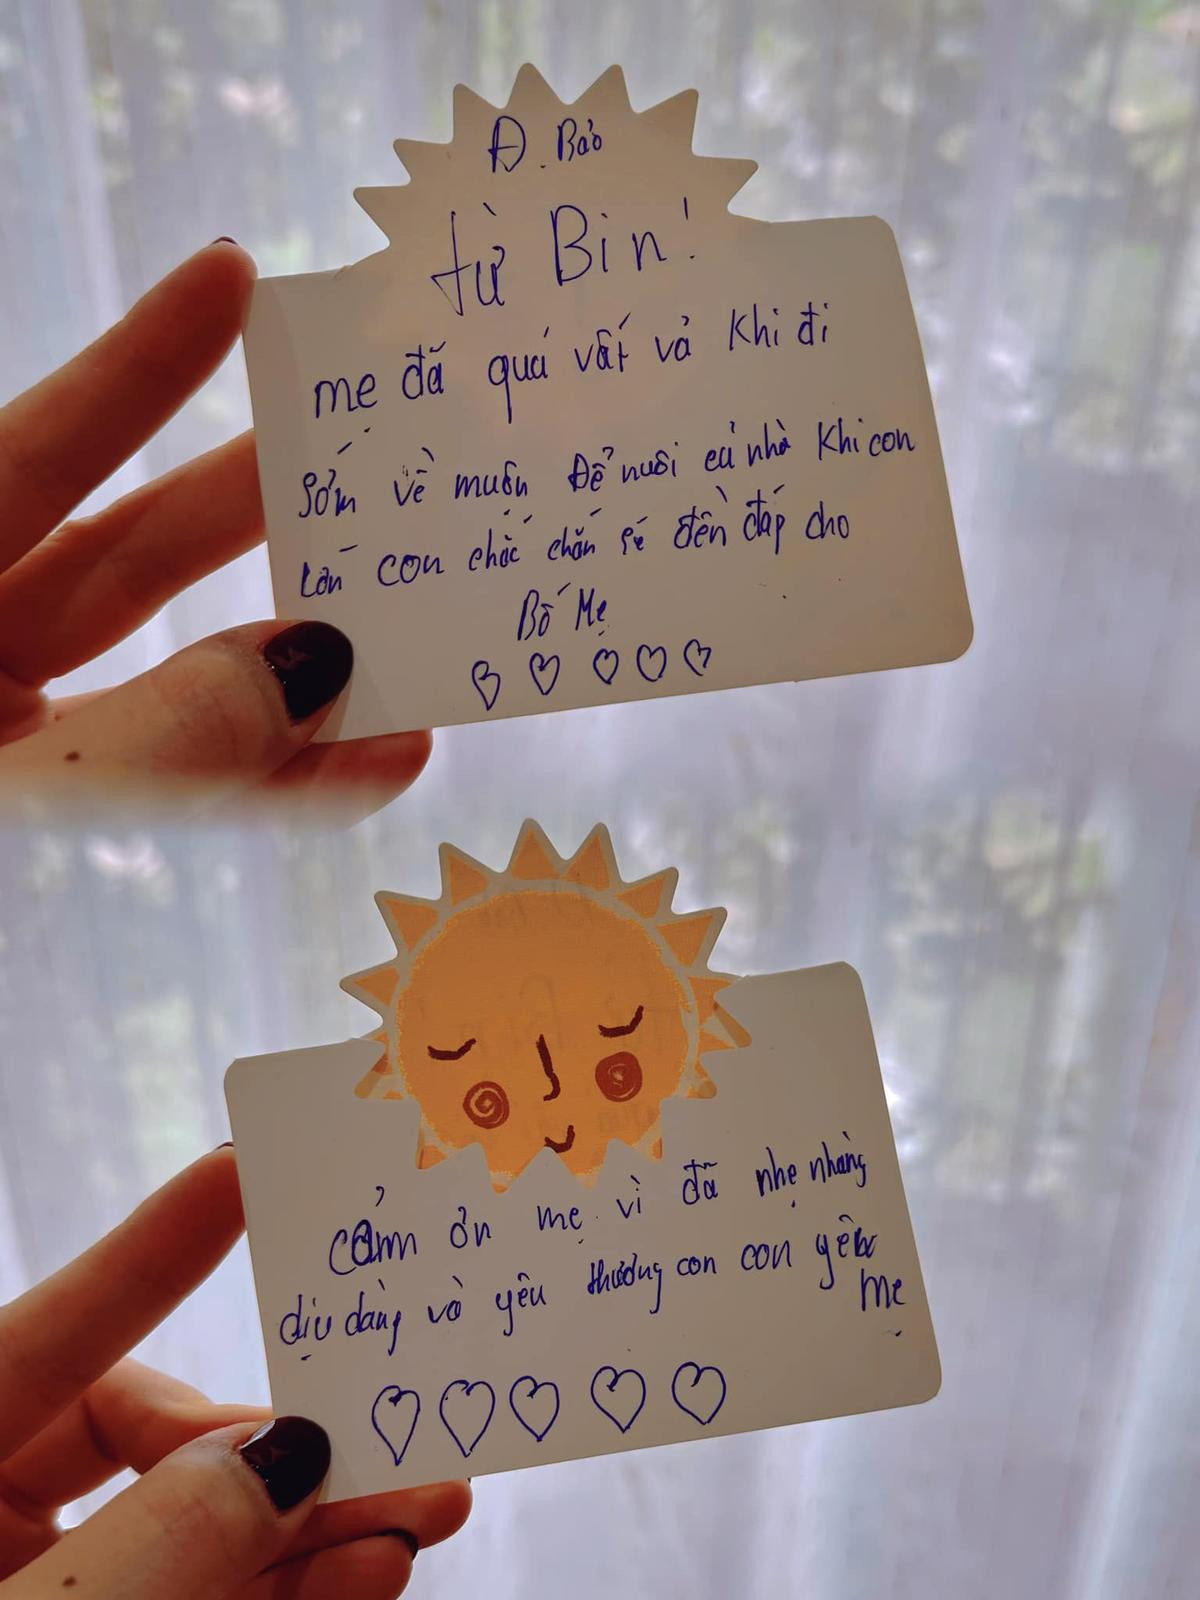 Đ. Bảo
từ Bin!
mẹ đã quá vất vả khi đi
sớm về muộn Để nuôi cả nhà khi con
lớn con chắc chắn sẽ đền đáp cho
Bố Mẹ
cảm ơn mẹ vì đã nhẹ nhàng
dịu dàng và yêu thương con con yêu
mẹ